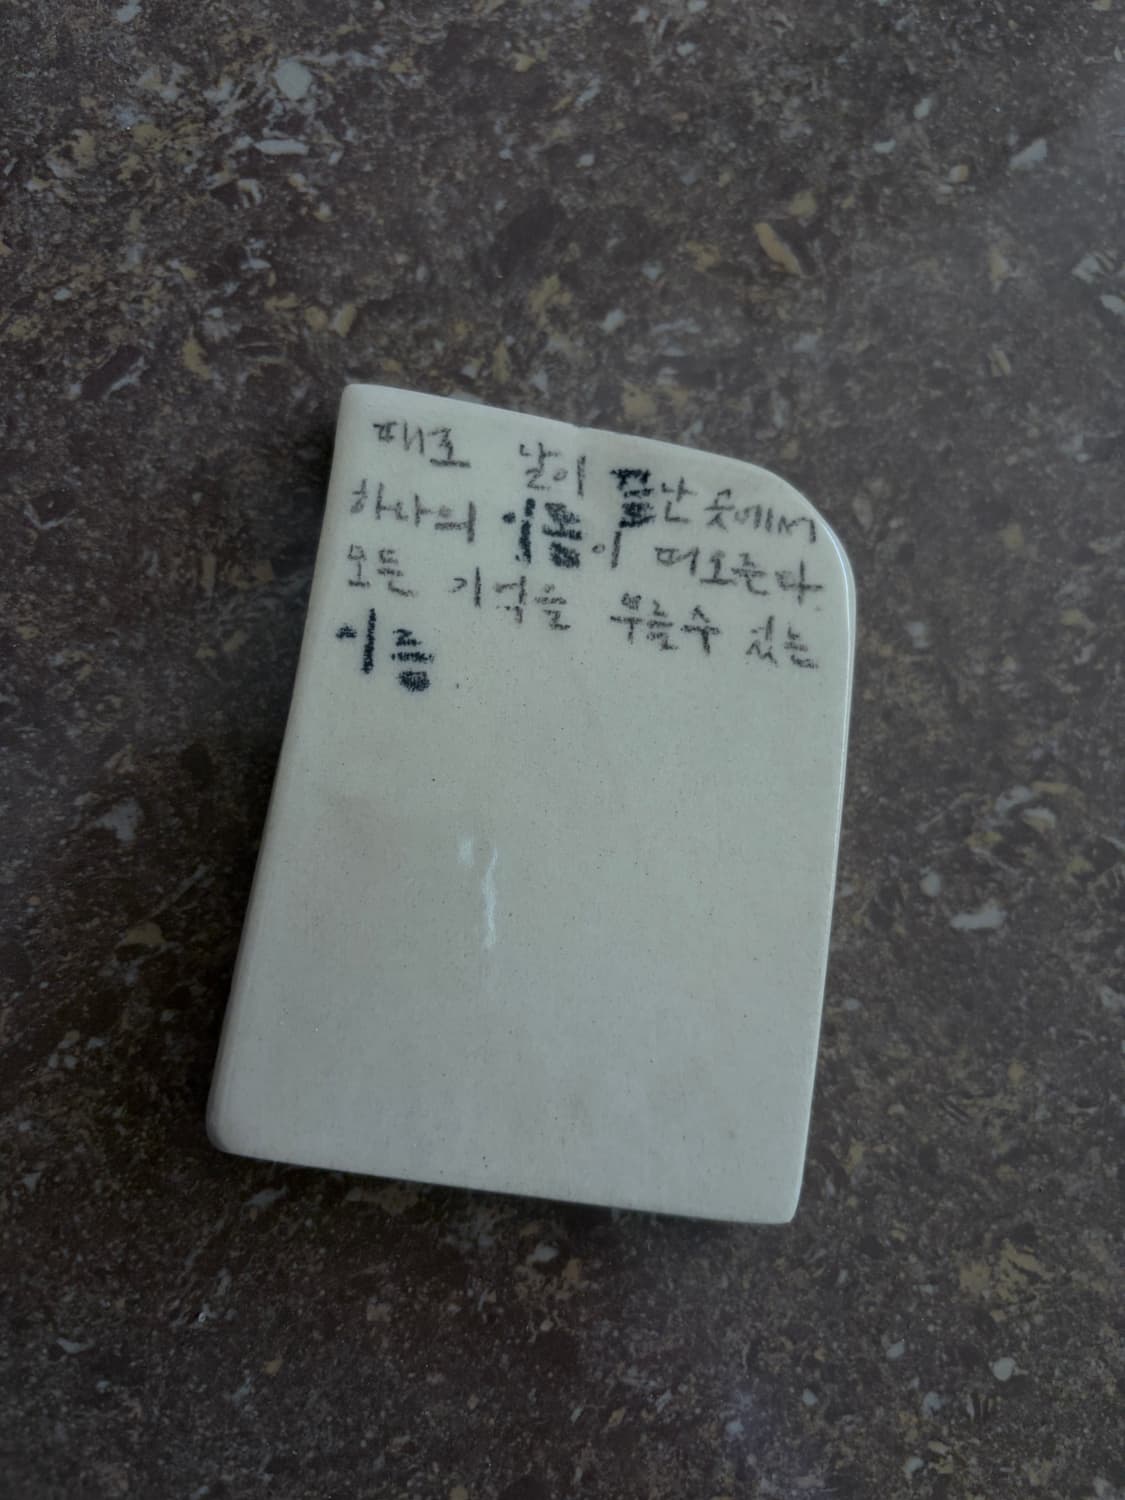 때로 날이 끝난 곳에서
하나의 이름이 떠오른다.
모든 기억을 부를수 있는
이름.